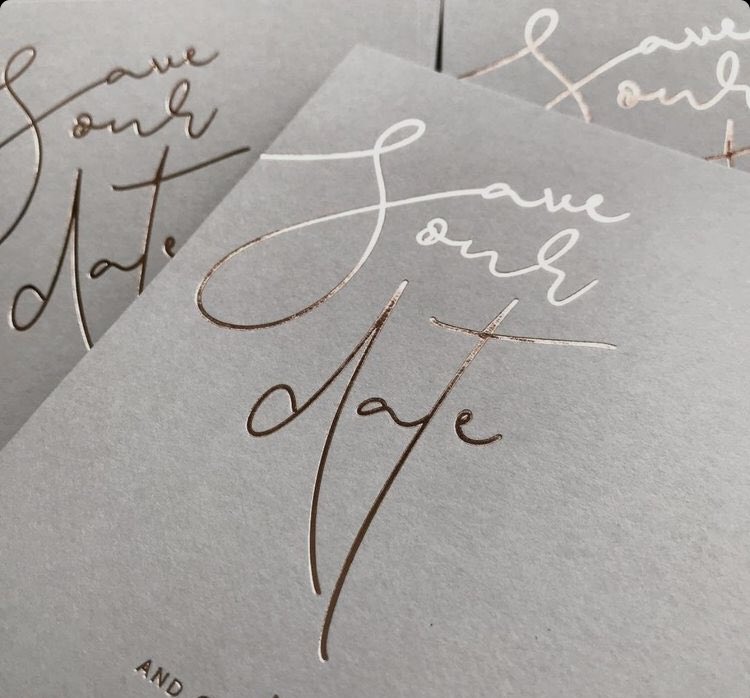 Save
our
date
AND
Save
our
date
Save
our